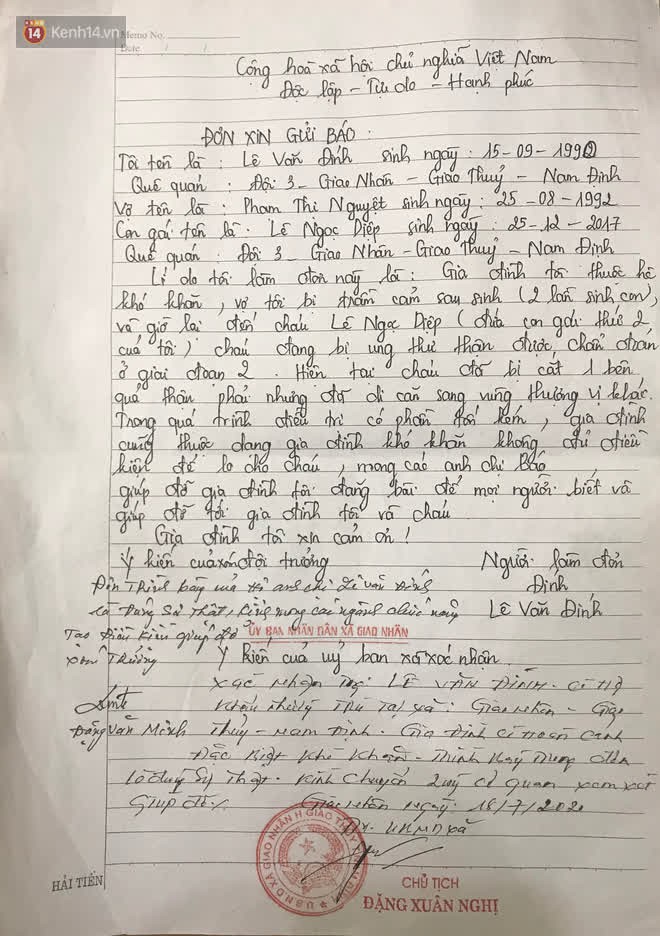 14 Kenh14.vn
Memo No.
Date / /
Cộng hoà xã hội chủ nghĩa Việt Nam
Độc lập - Tự do - Hạnh phúc
ĐƠN XIN GỬI BÁO
Tôi tên là : Lê Văn Đính sinh ngày : 15-09-1990
Quê quán : Đội 3 - Giao Nhân - Giao Thuỷ - Nam Định
Vợ tên là : Phạm Thị Nguyệt sinh ngày : 25-08-1992
Con gái tên là : Lê Ngọc Diệp sinh ngày : 25-12-2017
Quê quán : Đội 3 - Giao Nhân - Giao Thuỷ - Nam Định
Lí do tôi làm đơn này là : Gia đình tôi thuộc hộ
khó khăn, vợ tôi bị trầm cảm sau sinh (2 lần sinh con),
và giờ lại đến cháu Lê Ngọc Diệp (đứa con gái thứ 2
của tôi) cháu đang bị ung thư thận được chẩn đoán
ở giai đoạn 2. Hiện tại cháu đã bị cắt 1 bên
quả thận phải nhưng đã di căn sang vùng thượng vị khác.
Trong quá trình điều trị có phần tốn kém, gia đình
cũng thuộc dạng gia đình khó khăn không đủ điều
kiện để lo cho cháu, mong các anh chị Báo
giúp đỡ gia đình tôi đăng bài để mọi người biết và
giúp đỡ tới gia đình tôi và cháu
Gia đình tôi xin cảm ơn !
Ý kiến của xóm đội trưởng
Người làm đơn
Đơn Trình bày của Hộ anh chị Lê Văn Đính
Đính
Là Đúng Sự Thật, Kính mong các ngành chức năng
Lê Văn Đính
Tạo Điều Kiện giúp đỡ
ỦY BAN NHÂN DÂN XÃ GIAO NHÂN
Xóm Trưởng
Ý kiến của uỷ ban xã xác nhận.
Đặng Văn Minh
Xác nhận LÊ VĂN ĐÍNH. Có Hộ
Khẩu Thường Trú Tại xã : Giao Nhân - Giao
Thủy - Nam Định. Gia Đình có Hoàn Cảnh
Đặc Biệt Khó Khăn - Trình bày Trong đơn
Là đúng Sự Thật. Kính Chuyển Quý cơ quan xem xét
Giúp đỡ.
Giao Nhân ngày : 18/7/2020
TM. UBND xã
U.B.N.D XÃ GIAO NHÂN H GIAO THỦY
CHỦ TỊCH
ĐẶNG XUÂN NGHỊ
HẢI TIẾN